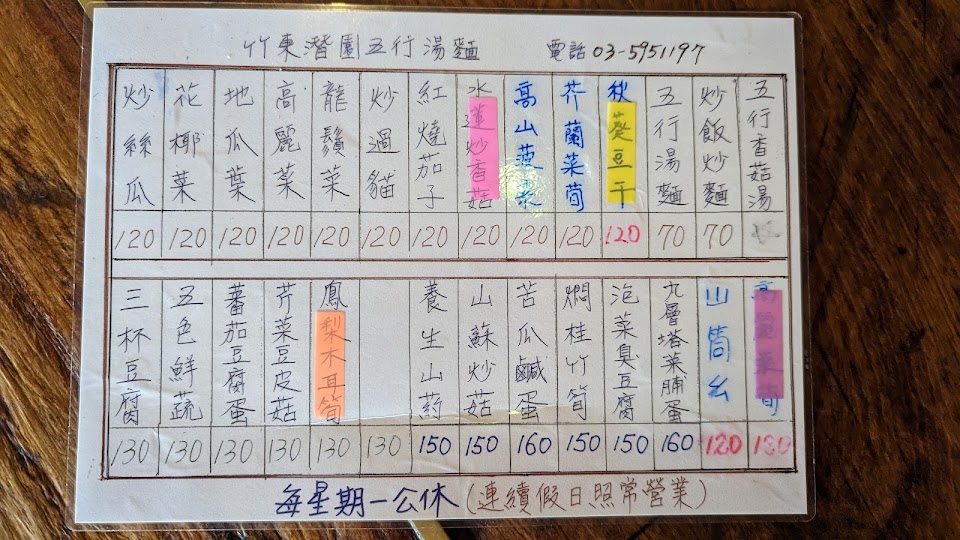 竹東潛園五行湯麵 電話 03-5951197
五行香菇湯
炒飯炒麵
70
五行湯麵
70
秋葵豆干
120
芥蘭菜荀
120
高山菠菜
120
水蓮炒香菇
120
紅燒茄子
120
炒過貓
120
龍鬚菜
120
高麗菜
120
地瓜葉
120
花椰菜
120
炒絲瓜
120
山筒么
120
九層塔菜脯蛋
160
泡菜臭豆腐
150
燜桂竹筍
150
苦瓜鹹蛋
160
山蘇炒菇
150
養生山药
150
130
鳳梨木耳筍
130
芹菜豆皮菇
130
蕃茄豆腐蛋
130
五色鮮蔬
130
三杯豆腐
130
每星期一公休(連續假日照常營業)